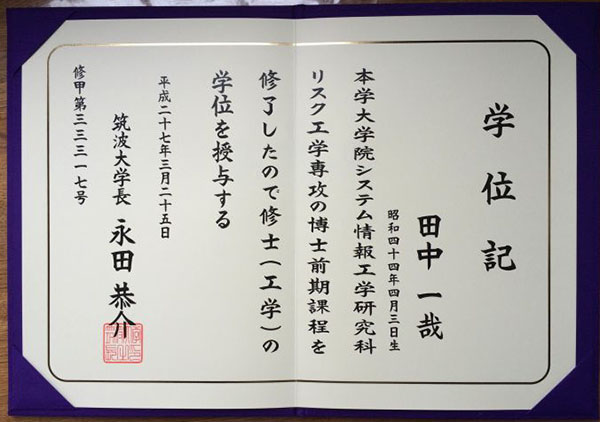 学位記
田中一哉
昭和四十四年四月三日生
本学大学院システム情報工学研究科
リスク工学専攻の博士前期課程を
修了したので修士(工学)の
学位を授与する
平成二十七年三月二十五日
筑波大学長 永田恭介
修甲第三三三一七号